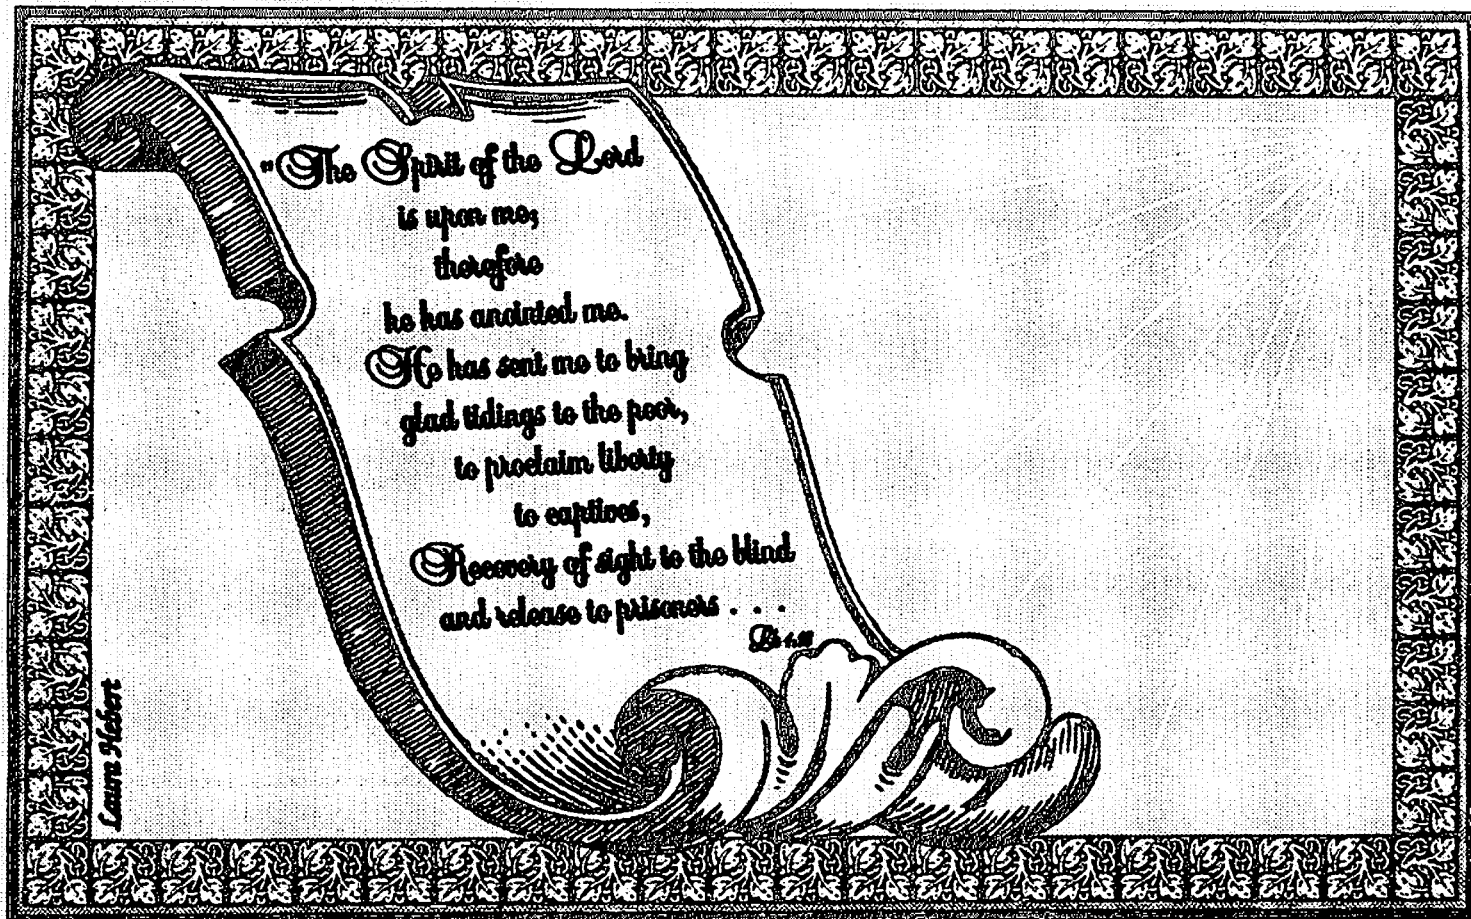 "The Spirit of the Lord
is upon me;
therefore
he has anointed me.
He has sent me to bring
glad tidings to the poor,
to proclaim liberty
to captives,
Recovery of sight to the blind
and release to prisoners . . .
Lk 4:18
Laura Hebert